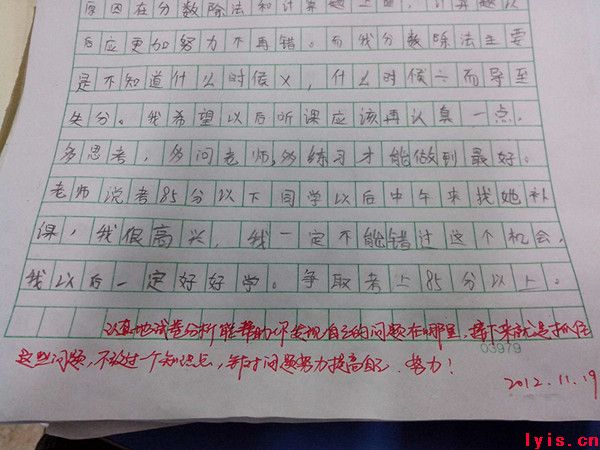 原因在分数除法和计算题上面，计算题以
后应更加努力不再错。而我分数除法主要
是不知道什么时候×，什么时候÷而导至
失分。我希望以后听课应该再认真一点，
多思考，多问老师，多练习才能做到最好。
老师说考85分以下同学以后中午来找她补
课，我很高兴，我一定不能错过这个机会，
我以后一定好好学。争取考上85分以上。
认真地试卷分析能帮助你发现自己的问题在哪里，接下来就是抓住
03979
这些问题，不放过一个知识点，针对问题努力提高自己，努力！
2012.11.19
lyis.cn